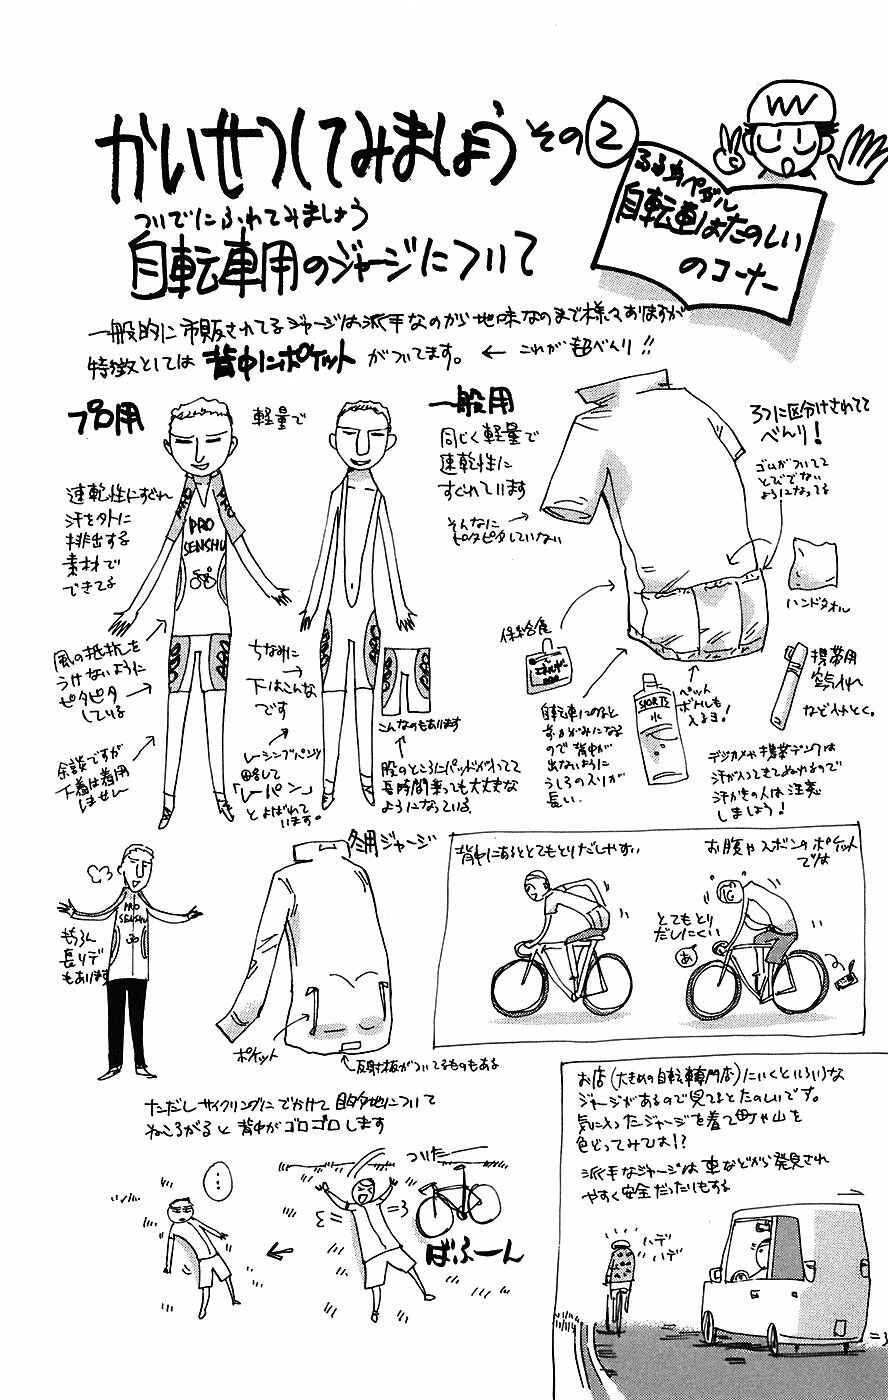 かいせつしてみましょう その②
るるるペダル
自転車はたのしい
のコーナー
ついでにふれてみましょう
自転車用のジャージについて
一般的に市販されてるジャージは派手なのから地味なのまで様々ありますが
特徴としては背中にポケットがついてます。 ← これが超べんり!!
プロ用
軽量で
速乾性にすぐれ
汗を外に
排出する
素材で
できてる
PRO
SENSHU
風の抵抗を
うけないように
ピタピタ
している
余談ですが
下着は着用
しませんー
ちなみに
下はこんな
です
レーシングパンツ
略して
「レーパン」
とよばれて
います。
こんなのもあります
股のところにパッドが入ってて
長時間乗っても大丈夫な
ようになっている。
一般用
同じく軽量で
速乾性に
すぐれています
そんなに
ピタピタしていない
3つに区分けされてて
べんり!
ゴムがついてて
とびでない
ようになってる
ハンドタオル
補給食
エネルギー
自転車にのると
前かがみになる
ので背中が
出ないように
うしろのスソが
長い
SPORTS
水
ペット
ボトルも
入るヨ!
携帯用
空気入れ
などイロイロと。
デジカメや携帯デンワは
汗が入ってきてぬれるので
汗かきの人は注意
しましょう!
PRO
SENSHU
もちろん
長ソデ
もあります
冬用ジャージ
ポケット
反射板がついてるものもある
背中にあるととてもとりだしやすい
お腹やズボンのポケット
では
とてもとり
だしにくい
あ
ただしサイクリングにでかけて目的地について
ねころがると背中がゴロゴロします
…
ついたー
ばふーん
お店(大きめの自転車専門店)にいくといろいろな
ジャージがあるので見てるとたのしいです。
気に入ったジャージを着て町や山を
色どってみては!?
派手なジャージは車などから発見され
やすく安全だったりもする
ハデ
ハデ